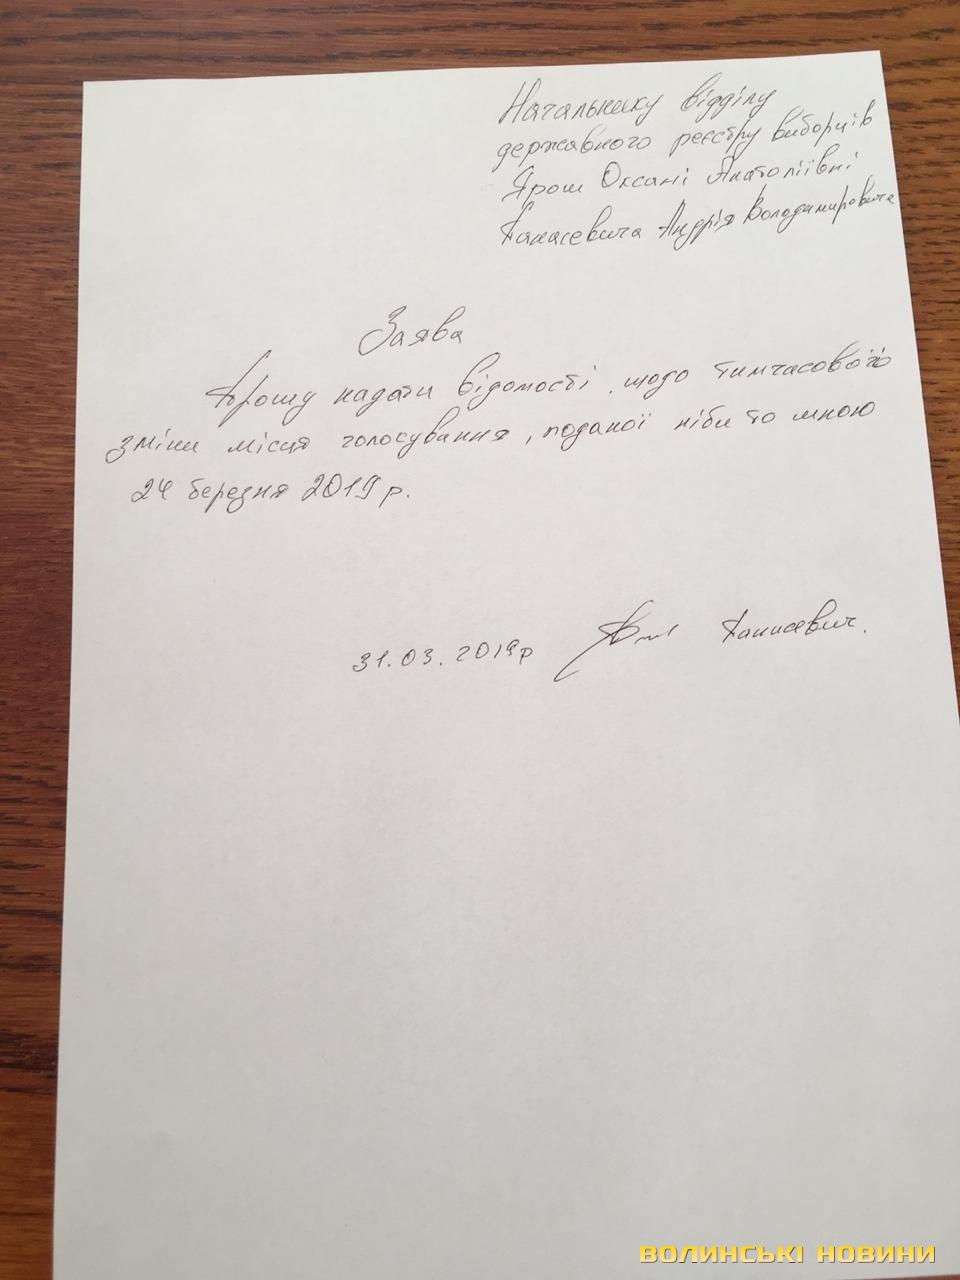 Начальнику відділу
державного реєстру виборців
Ярош Оксані Анатоліївні
Панасевича Андрія Володимировича
Заява
Прошу надати відомості щодо тимчасової
зміни місця голосування, поданої ніби то мною
24 березня 2019 р.
31.03.2019р Панасевич.
ВОЛИНСЬКІ НОВИНИ